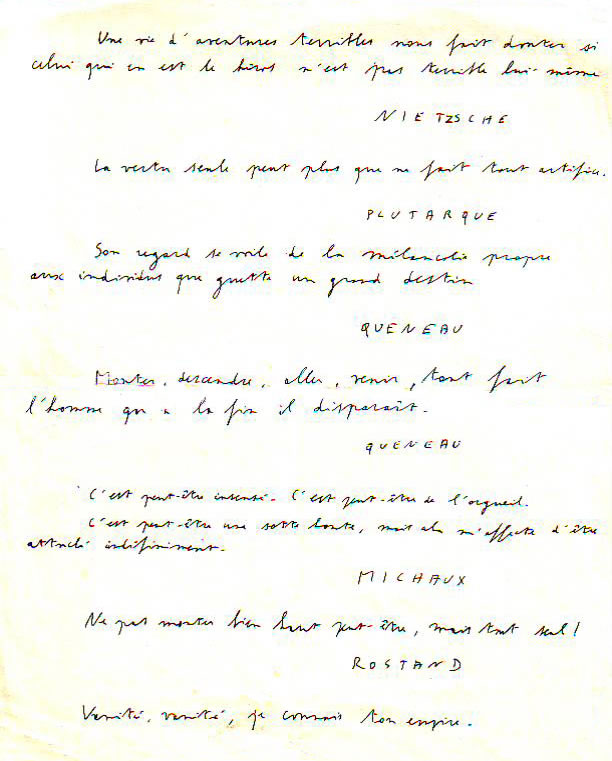 Une vie d'aventures terribles nous fait douter si
celui qui en est le héros n'est pas terrible lui-même
NIETZSCHE
La vertu seule peut plus que ne fait tout artifice.
PLUTARQUE
Son regard se voile de la mélancolie propre
aux individus que guette un grand destin
QUENEAU
Monter, descendre, aller, venir, tant fait
l'homme qu'a la fin il disparaît.
QUENEAU
C'est peut-être insensé. C'est peut-être de l'orgueil.
C'est peut-être une sotte honte, mais m'affecte d'être
attaché indéfiniment.
MICHAUX
Ne pas monter bien haut peut-être, mais tout seul!
ROSTAND
Vanité, vanité, je connais ton empire.